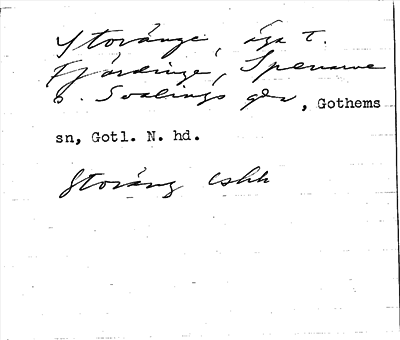 Storänge, äga t.
Fjärdinge, Spenarve
o. Svalings gdr, Gothems
sn, Gotl. N. hd.
Storäng